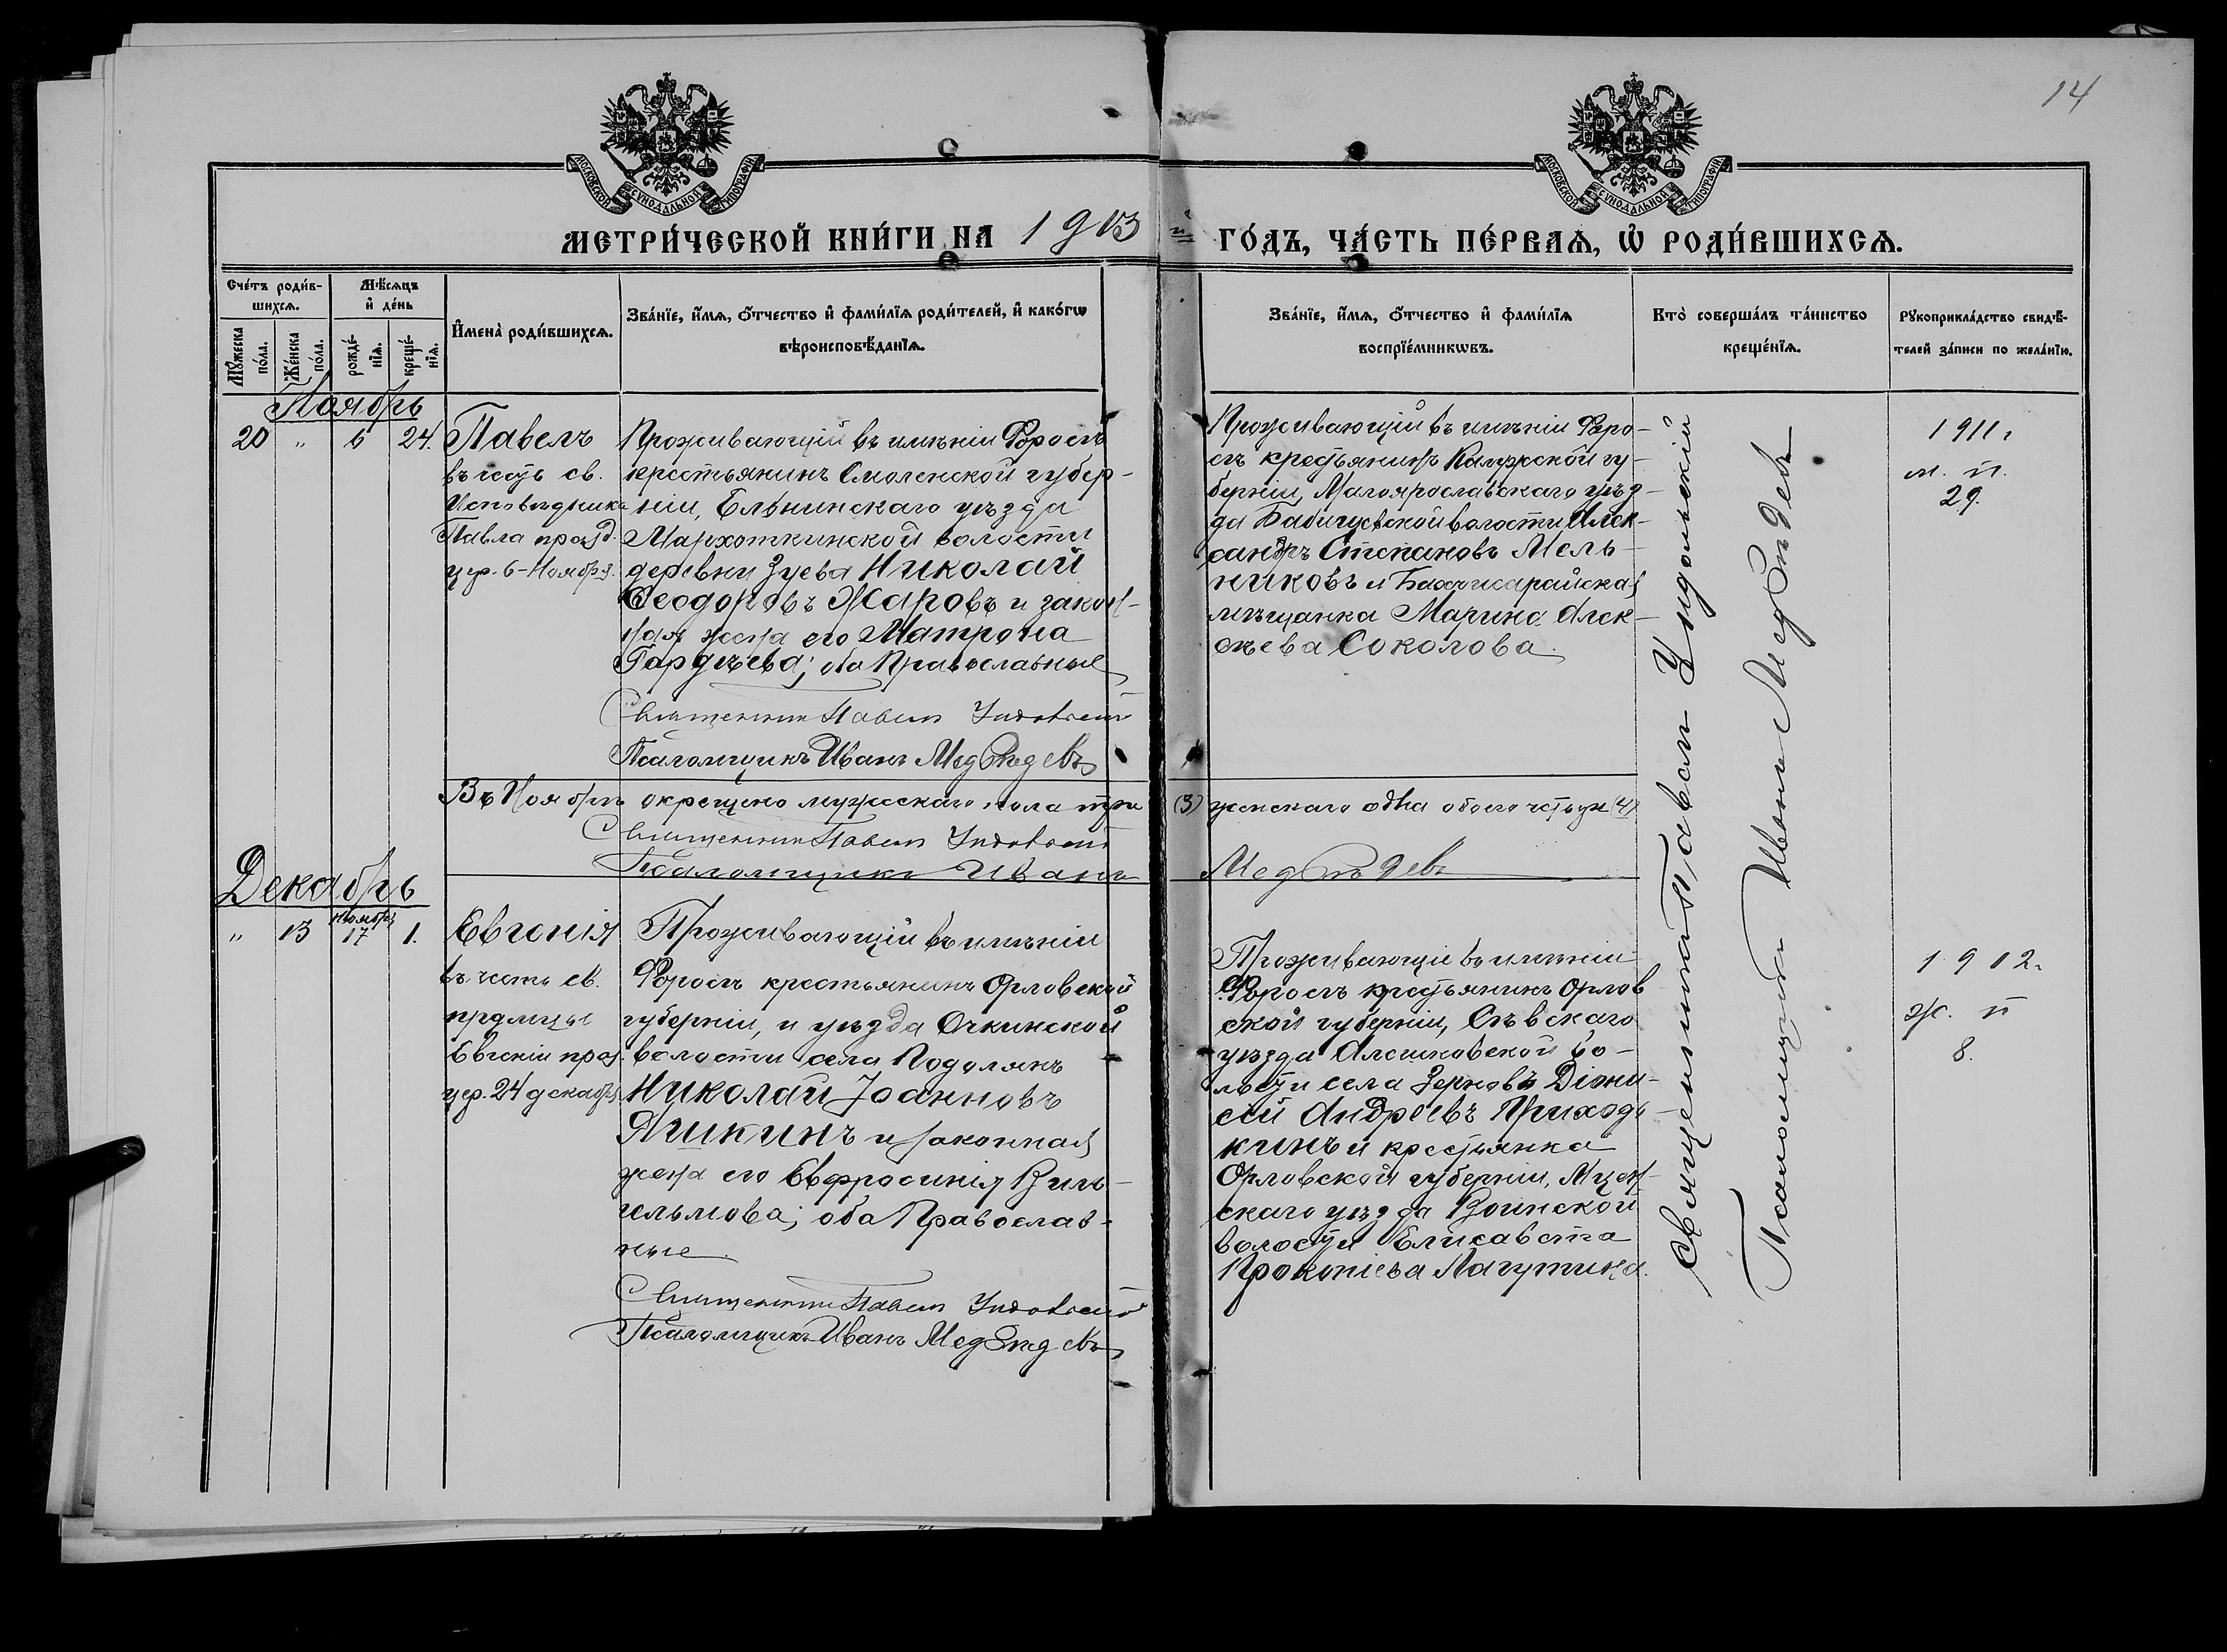 14
МОСКОВСКОЙ СУНОДАЛЬНОЙ ТИПОГРАФІИ
МОСКОВСКОЙ СУНОДАЛЬНОЙ ТИПОГРАФІИ
МЕТРИ́ЧЕСКОЙ КНИ́ГИ НА 1913 й ГО́ДЪ, ЧА́СТЬ ПЕ́РВАѦ, Ѡ РОДИ́ВШИХСѦ.
Сче́тъ роди́в-
шихсѧ.
Мꙋ́жеска по́ла.
Же́нска по́ла.
Мѣ́сѧцъ
и де́нь
рожде́-
нїѧ.
креще́-
нїѧ.
Имена̀ роди́вшихсѧ.
Зва́нїе, и́мѧ, о́тчество и фами́лїѧ роди́телей, и како́гѡ
вѣроисповѣ́данїѧ.
Зва́нїе, и́мѧ, о́тчество и фами́лїѧ
воспрїе́мникѡвъ.
Кто̀ соверша́лъ та́инство
креще́нїѧ.
Рꙋкоприкла́дство свидѣ́-
телей за́писи по жела́нїю.
Ноябрь
20 " 6 24.
Павелъ
въ честь св.
Исповѣдника
Павла празд.
цер. 6-Ноября.
Проживающій въ имѣніи Форосъ
крестьянинъ Смоленской губер-
ніи, Ельнинскаго уѣзда
Мархоткинской волости
деревни Зуева Николай
Ѳеодоровъ Жаровъ и закон-
ная жена его Матрона
Гордѣева; оба Православные
Священникъ Павелъ Ундольскій
Псаломщикъ Иванъ Медвѣдевъ
Проживающій въ имѣніи Форо-
съ крестьянинъ Калужской гу-
берніи, Малоярославскаго уѣз-
да Бабичевской волости Алек-
сандръ Стспановъ Мель-
никовъ и Бахчисарайская
мѣщанка Марина Алек-
сѣева Соколова.
1911 г.
м. п.
29.
Въ Ноябрѣ окрещено мужескаго пола три (3) женскаго одна обоего четыре (4)
Священникъ Павелъ Ундольскій
Псаломщикъ Иванъ Медвѣдевъ
Декабрь
" 13 Ноября 17 1.
Евгенія
въ честь св.
прдмцы
Евгеніи праз.
цер. 24 декабря
Проживающій въ имѣніи
Форосъ крестьянинъ Орловской
губерніи, и уѣзда Очкинской
волости села Подолянъ
Николай Іоанновъ
Яшкинъ и законная
жена его Евфросинія Виль-
гельмова; оба Православ-
ные.
Священникъ Павелъ Ундольскій
Псаломщикъ Иванъ Медвѣдевъ
Проживающіе въ имѣніи
Форосъ крестьянинъ Орлов
ской губерніи, Сѣвскаго
уѣзда Алешковской во-
лости села Зерновъ Діони-
сій Андреевъ Приходь-
кинъ и крестьянка
Орловской губерніи, Мцен-
скаго уѣзда Воинской
волости Елисавета
Прокопіева Лагутина.
1912 г.
ж. п
8.
Священникъ Павелъ Ундольскій
Псаломщикъ Иванъ Медвѣдевъ